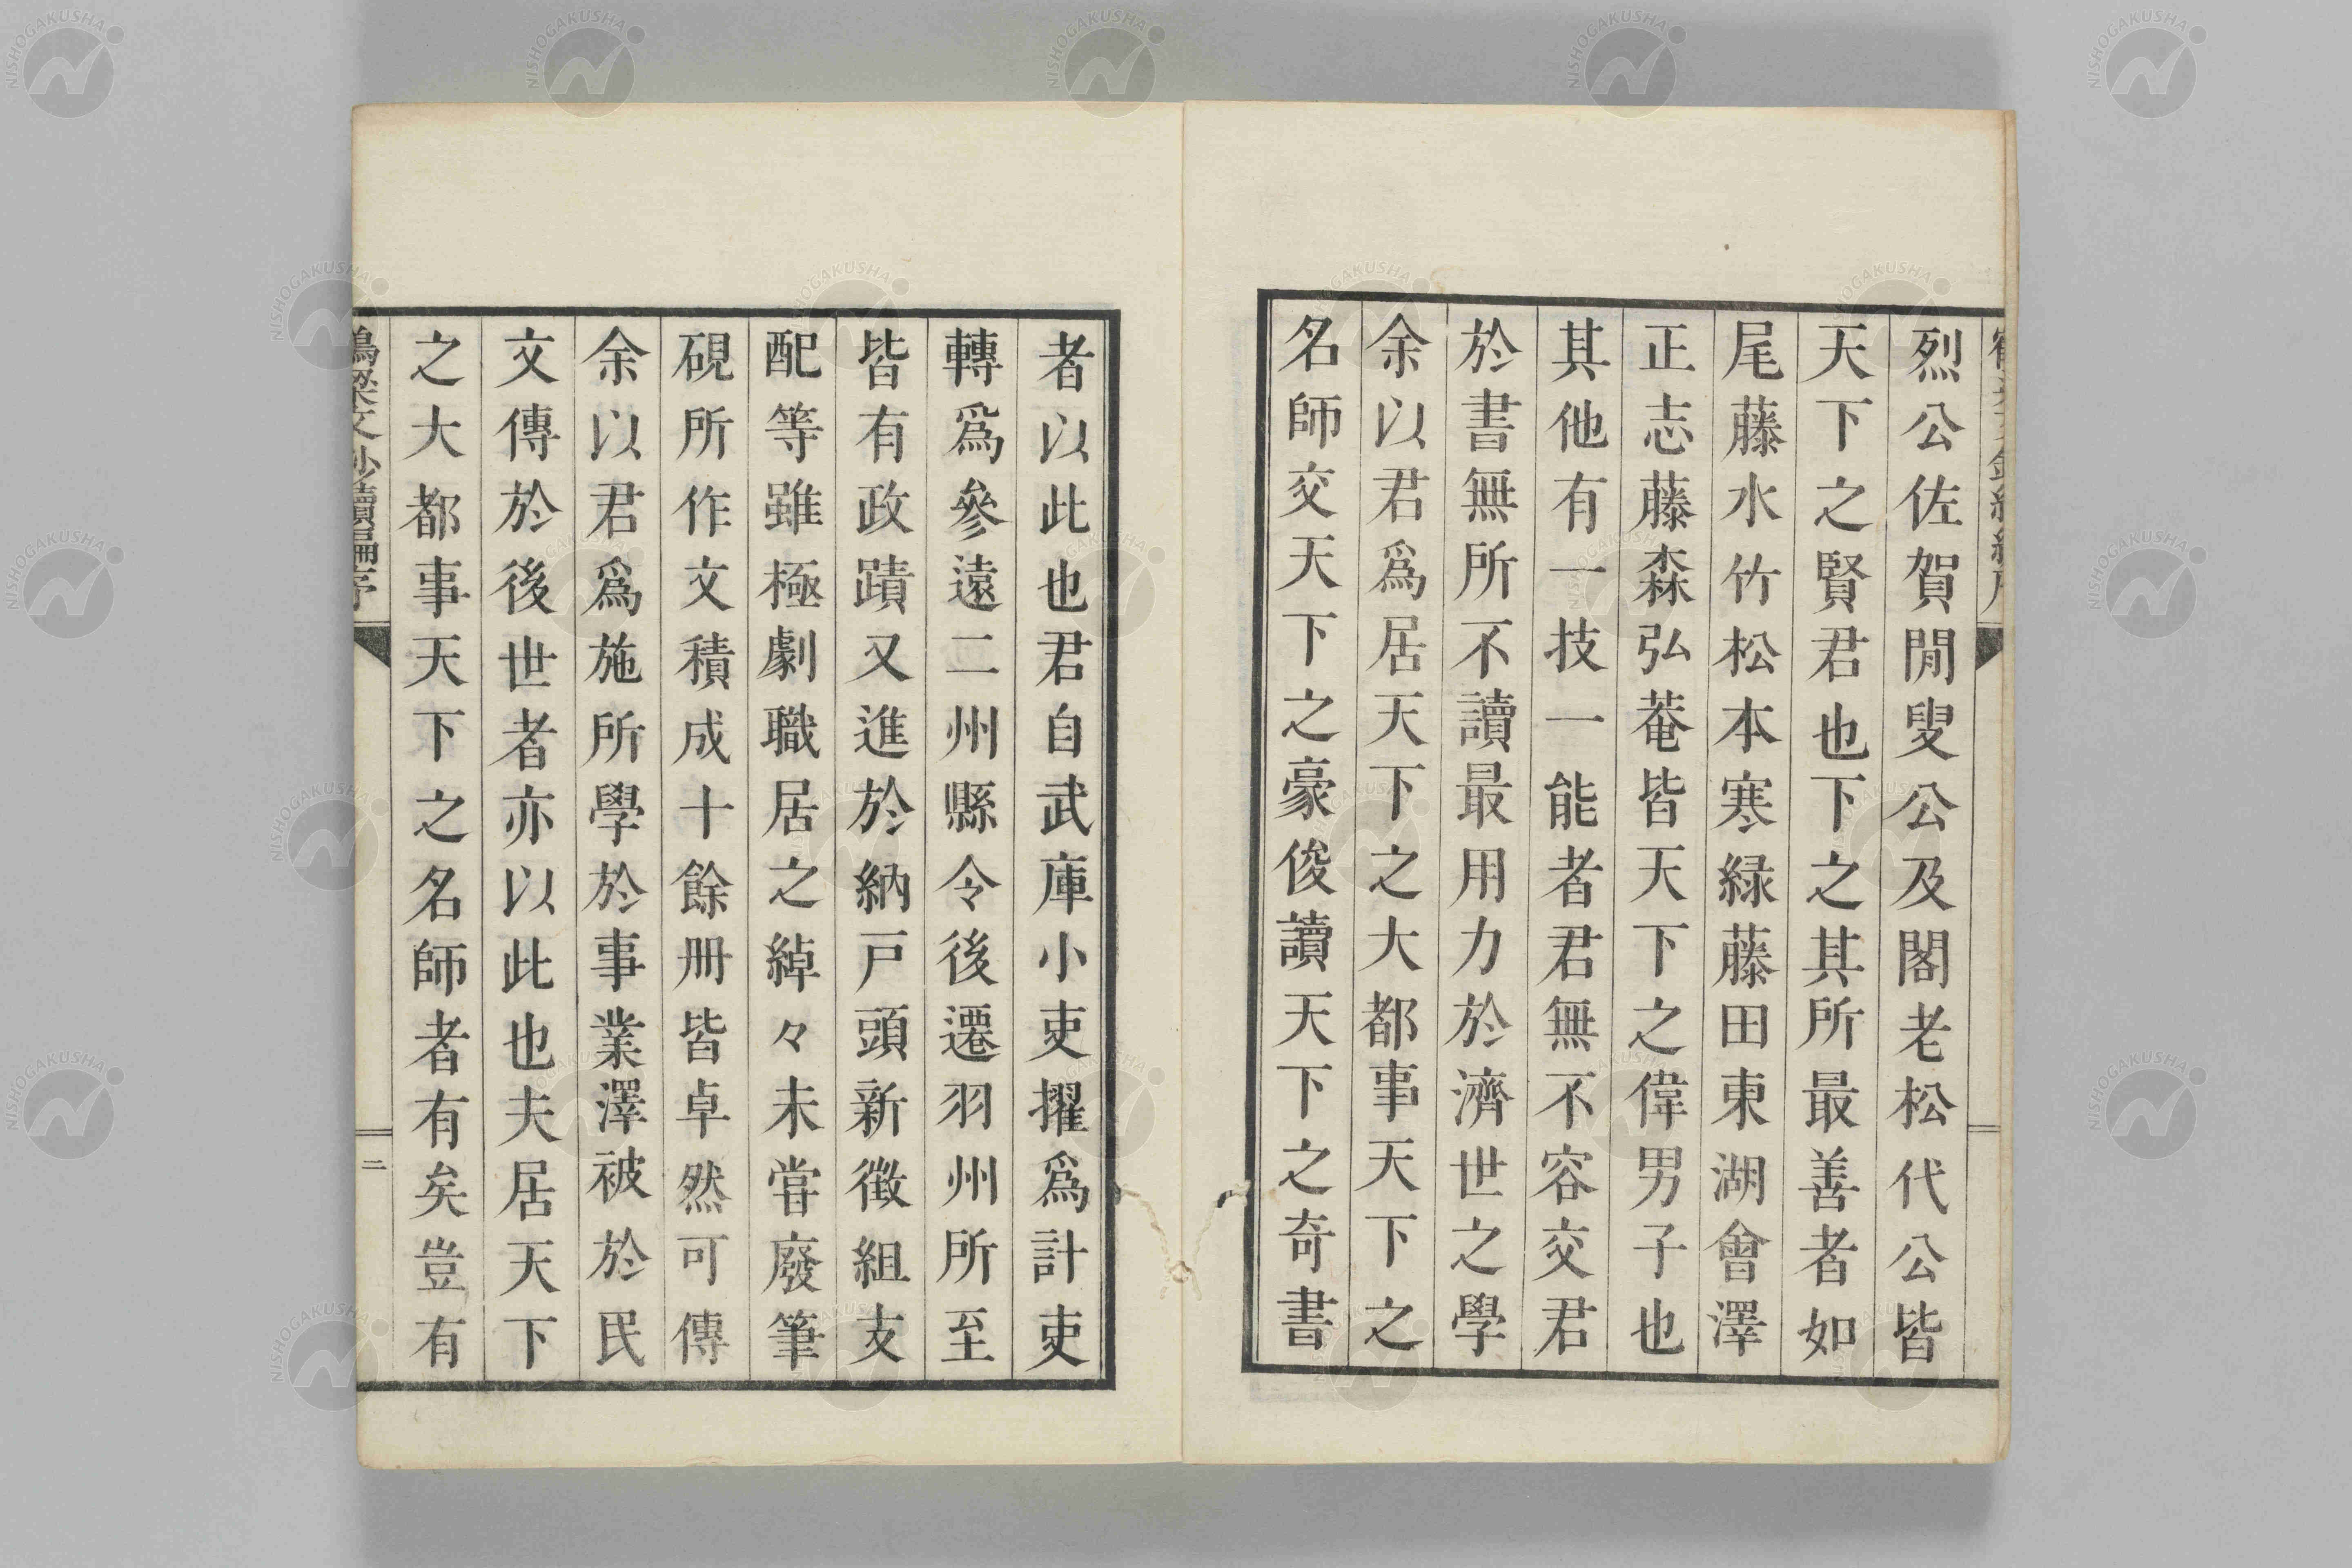 烈公佐賀閒叟公及閣老松代公皆
天下之賢君也下之其所最善者如
尾藤水竹松本寒緑藤田東湖會澤
正志藤森弘菴皆天下之偉男子也
其他有一技一能者君無不容交君
於書無所不讀最用力於濟世之學
余以君爲居天下之大都事天下之
名師交天下之豪俊讀天下之奇書
者以此也君自武庫小吏擢爲計吏
轉爲參遠二州縣令後遷羽州所至
皆有政蹟又進於納戸頭新徴組支
配等雖極劇職居之綽々未嘗廢筆
硯所作文積成十餘册皆卓然可傳
余以君爲施所學於事業澤被於民
文傳於後世者亦以此也夫居天下
之大都事天下之名師者有矣豈有
二
NISHOGAKUSHA